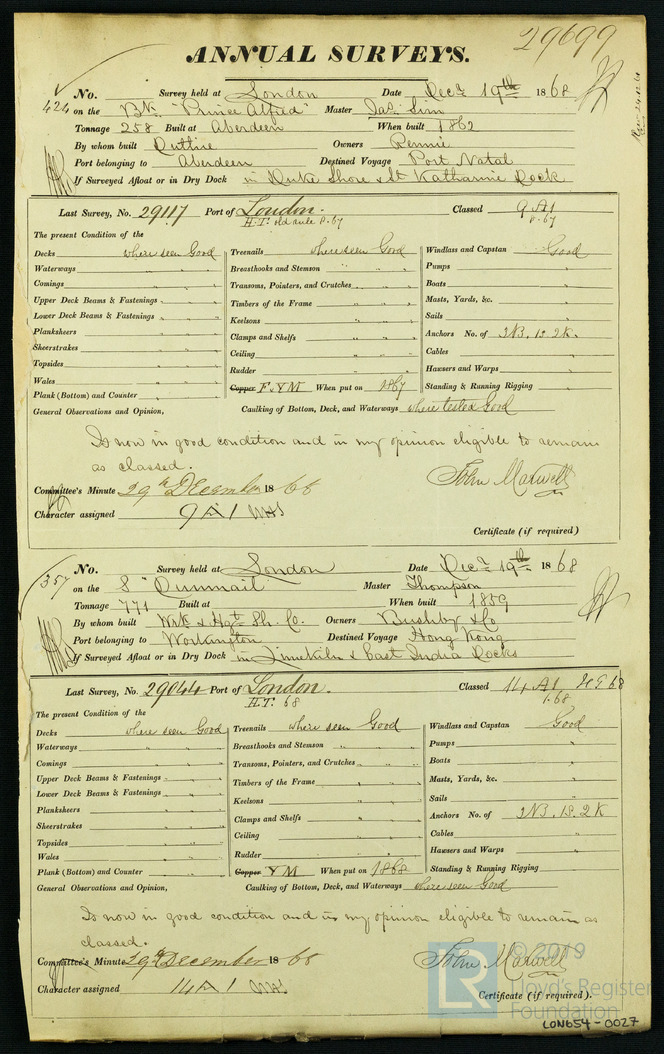 29699
ANNUAL SURVEYS.
No. Survey held at London Date Decr 19th 1868
424 on the Bk "Prince Alfred" Master Jas. Sim
Tonnage 258 Built at Aberdeen When built 1862
By whom built Duthie Owners Rennie
Port belonging to Aberdeen Destined Voyage Port Natal
If Surveyed Afloat or in Dry Dock in Duke Shore & St Katharine Dock
Last Survey, No. 29117 Port of London. Classed 9 A1
H.T. old rule P. 67 P. 67
The present Condition of the
Decks where seen Good Treenails where seen Good Windlass and Capstan Good
Waterways " " Breasthooks and Stemson " " Pumps "
Comings " " Transoms, Pointers, and Crutches " " Boats "
Upper Deck Beams & Fastenings " " Timbers of the Frame " " Masts, Yards, &c. "
Lower Deck Beams & Fastenings " " Keelsons " " Sails "
Planksheers " " Clamps and Shelfs " " Anchors No. of 3B. 1S. 2K.
Sheerstrakes " " Ceiling " " Cables "
Topsides " " Rudder " " Hawsers and Warps "
Wales " " Copper F. & YM When put on 1867 Standing & Running Rigging "
Plank (Bottom) and Counter " "
General Observations and Opinion, Caulking of Bottom, Deck, and Waterways where tested Good
Is now in good condition and in my opinion eligible to remain
as classed.
John Maxwell
Committee's Minute 29th December 1868
Character assigned 9 A 1
Certificate (if required)
No. Survey held at London Date Decr 19th 1868
357 on the S "Dunmail" Master Thompson
Tonnage 771 Built at When built 1859
By whom built Wrk & Hgtn Sh. Co. Owners Bushby & Co
Port belonging to Workington Destined Voyage Hong Kong
If Surveyed Afloat or in Dry Dock in Limekiln & East India Docks
Last Survey, No. 29044 Port of London. Classed 14 A1
H.T. 68 1.68
The present Condition of the
Decks where seen Good Treenails where seen Good Windlass and Capstan Good
Waterways " " Breasthooks and Stemson " " Pumps "
Comings " " Transoms, Pointers, and Crutches " " Boats "
Upper Deck Beams & Fastenings " " Timbers of the Frame " " Masts, Yards, &c. "
Lower Deck Beams & Fastenings " " Keelsons " " Sails "
Planksheers " " Clamps and Shelfs " " Anchors No. of 3B. 1S. 2K
Sheerstrakes " " Ceiling " " Cables "
Topsides " " Rudder " " Hawsers and Warps "
Wales " " Copper YM When put on 1868 Standing & Running Rigging "
Plank (Bottom) and Counter " "
General Observations and Opinion, Caulking of Bottom, Deck, and Waterways where seen Good
Is now in good condition and in my opinion eligible to remain as
classed.
John Maxwell
Committee's Minute 29th December 1868
Character assigned 14 A 1
Certificate (if required).
LR
© 2019
Lloyd's Register
Foundation
LON654-0027